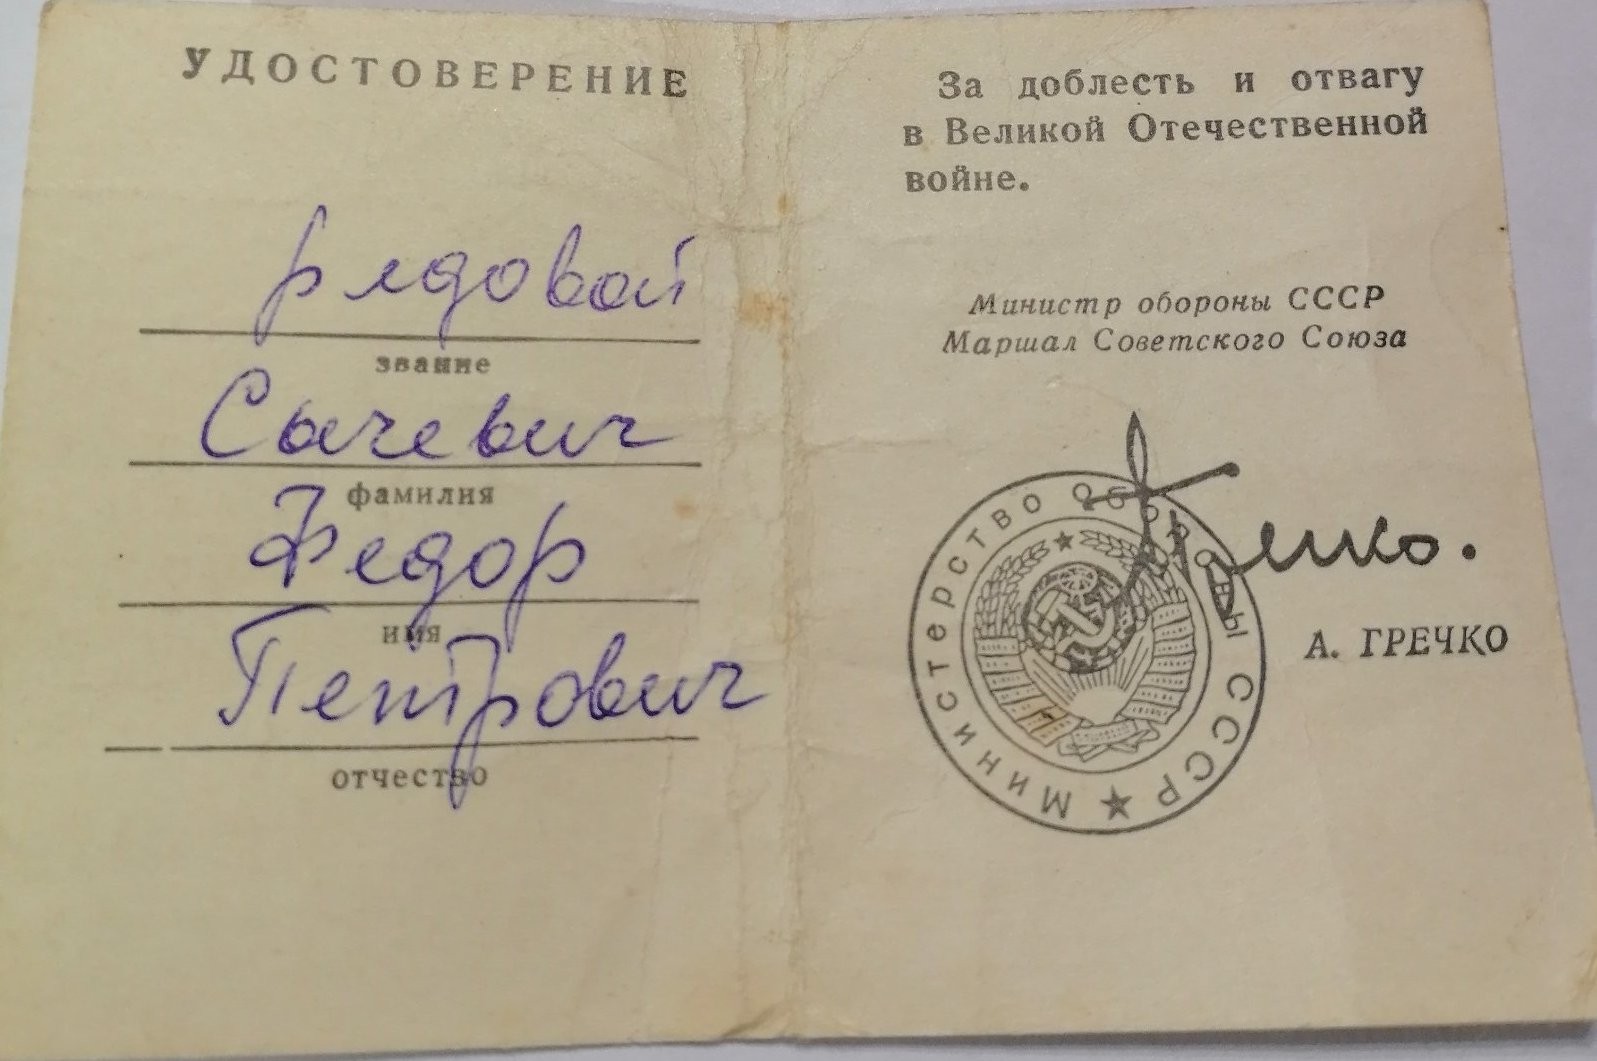 УДОСТОВЕРЕНИЕ
рядовой
звание
Сачевич
фамилия
Федор
имя
Петрович
отчество
За доблесть и отвагу
в Великой Отечественной
войне.
Министр обороны СССР
Маршал Советского Союза
Министерство Обороны СССР
Гречко.
А. ГРЕЧКО